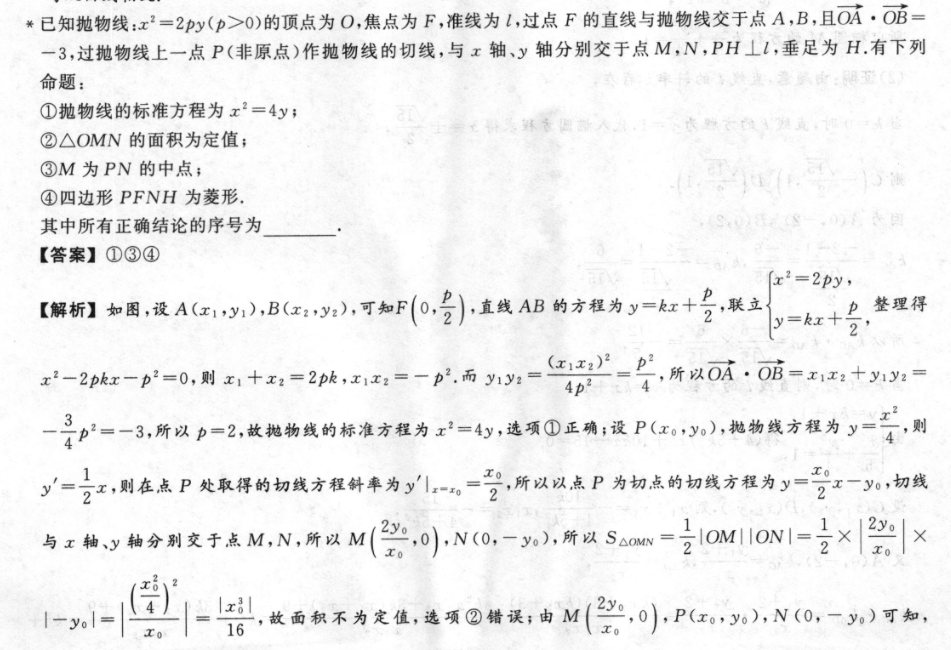 *已知抛物线:x²=2py(p>0)的顶点为O,焦点为F,准线为l,过点F的直线与抛物线交于点A,B,且\overrightarrow{OA}·\overrightarrow{OB}=
-3,过抛物线上一点P(非原点)作抛物线的切线,与x轴、y轴分别交于点M,N,PH⊥l,垂足为H.有下列
命题:
①抛物线的标准方程为x²=4y;
②△OMN的面积为定值;
③M为PN的中点;
④四边形PFNH为菱形.
其中所有正确结论的序号为________.
【答案】①③④
【解析】如图,设A(x₁,y₁),B(x₂,y₂),可知F(0,\frac{p}{2}),直线AB的方程为y=kx+\frac{p}{2},联立\begin{cases}x²=2py,\\y=kx+\frac{p}{2},\end{cases}整理得
x²-2pkx-p²=0,则x₁+x₂=2pk,x₁x₂=-p².而y₁y₂=\frac{(x₁x₂)²}{4p²}=\frac{p²}{4},所以\overrightarrow{OA}·\overrightarrow{OB}=x₁x₂+y₁y₂=
-\frac{3}{4}p²=-3,所以p=2,故抛物线的标准方程为x²=4y,选项①正确;设P(x₀,y₀),抛物线方程为y=\frac{x²}{4},则
y'=\frac{1}{2}x,则在点P处取得的切线方程斜率为y'|_{x=x₀}=\frac{x₀}{2},所以以点P为切点的切线方程为y=\frac{x₀}{2}x-y₀,切线
与x轴、y轴分别交于点M,N,所以M(\frac{2y₀}{x₀},0),N(0,-y₀),所以S_{△OMN}=\frac{1}{2}|OM||ON|=\frac{1}{2}×|\frac{2y₀}{x₀}|×
|-y₀|=|\frac{(\frac{x₀²}{4})²}{x₀}|=\frac{|x₀³|}{16},故面积不为定值,选项②错误;由M(\frac{2y₀}{x₀},0),P(x₀,y₀),N(0,-y₀)可知,